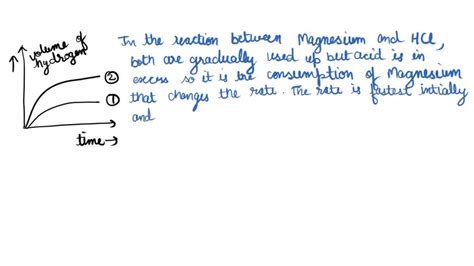 volume of
hydrogen
②
①
time →
In the reaction between Magnesium and HCl,
both are gradually used up but acid is in
excess so it is the consumption of Magnesium
that changes the rate. The rate is fastest intially
and